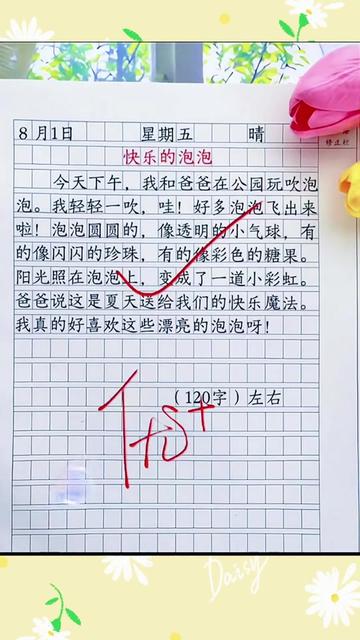 8月1日 星期五 晴
快乐的泡泡
今天下午，我和爸爸在公园玩吹泡
泡。我轻轻一吹，哇！好多泡泡飞出来
啦！泡泡圆圆的，像透明的小气球，有
的像闪闪的珍珠，有的像彩色的糖果。
阳光照在泡泡上，变成了一道小彩虹。
爸爸说这是夏天送给我们的快乐魔法。
我真的好喜欢这些漂亮的泡泡呀！
（120字）左右
Daisy